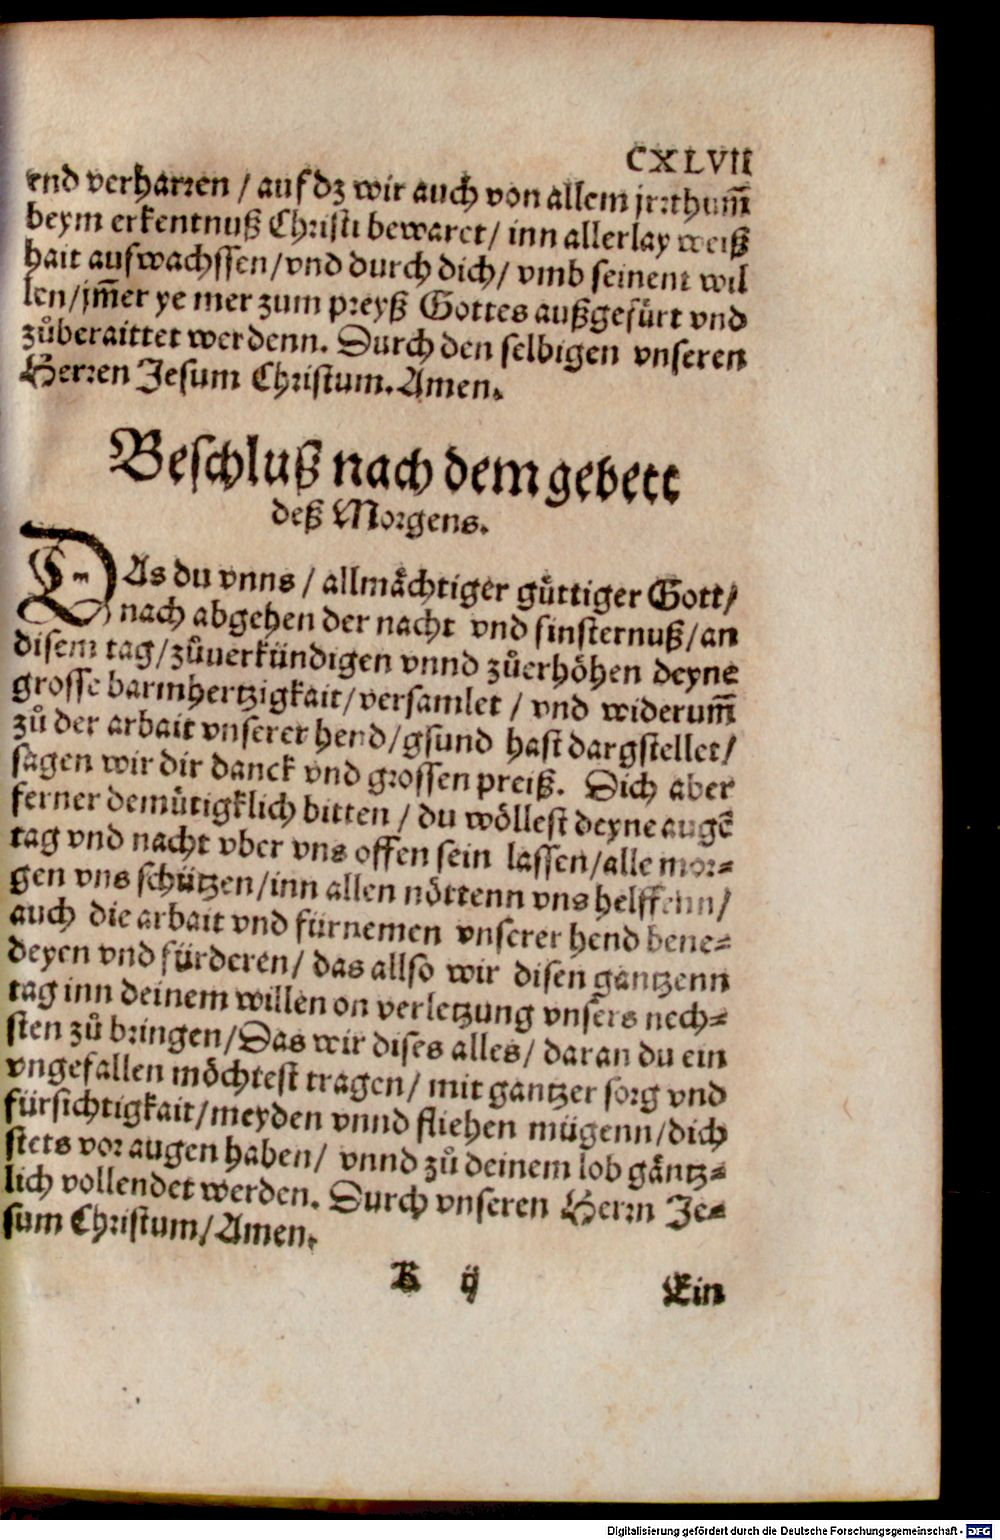 CXLVII
end verharren / auf dz wir auch von allem jrrthum̄
beym erkentnuß Christi bewaret / inn allerlay weiß
hait aufwachssen / vnd durch dich / vmb seinent wil
len / jm̄er ye mer zum preyß Gottes außgefürt vnd
zůberaittet werdenn. Durch den selbigen vnseren
Herren Jesum Christum. Amen.
Beschluß nach dem gebett
deß Morgens.
DAs du vnns / allmåchtiger gůttiger Gott /
nach abgehen der nacht vnd finsternuß / an
disem tag / zůuerkündigen vnnd zůerhöhen deyne
grosse barmhertzigkait / versamlet / vnd widerum̄
zů der arbait vnserer hend / gsund hast dargstellet /
sagen wir dir danck vnd grossen preiß. Dich aber
ferner demůtigklich bitten / du wöllest deyne augē
tag vnd nacht vber vns offen sein lassen / alle mor⸗
gen vns schützen / inn allen nöttenn vns helffenn /
auch die arbait vnd fürnemen vnserer hend bene⸗
deyen vnd fürderen / das allso wir disen gantzenn
tag inn deinem willen on verletzung vnsers nech⸗
sten zů bringen / Das wir dises alles / daran du ein
vngefallen möchtest tragen / mit gantzer sorg vnd
fürsichtigkait / meyden vnnd fliehen mügenn / dich
stets vor augen haben / vnnd zů deinem lob gåntz⸗
lich vollendet werden. Durch vnseren Herrn Je⸗
sum Christum / Amen.
R ij Ein
Digitalisierung gefördert durch die Deutsche Forschungsgemeinschaft - DFG